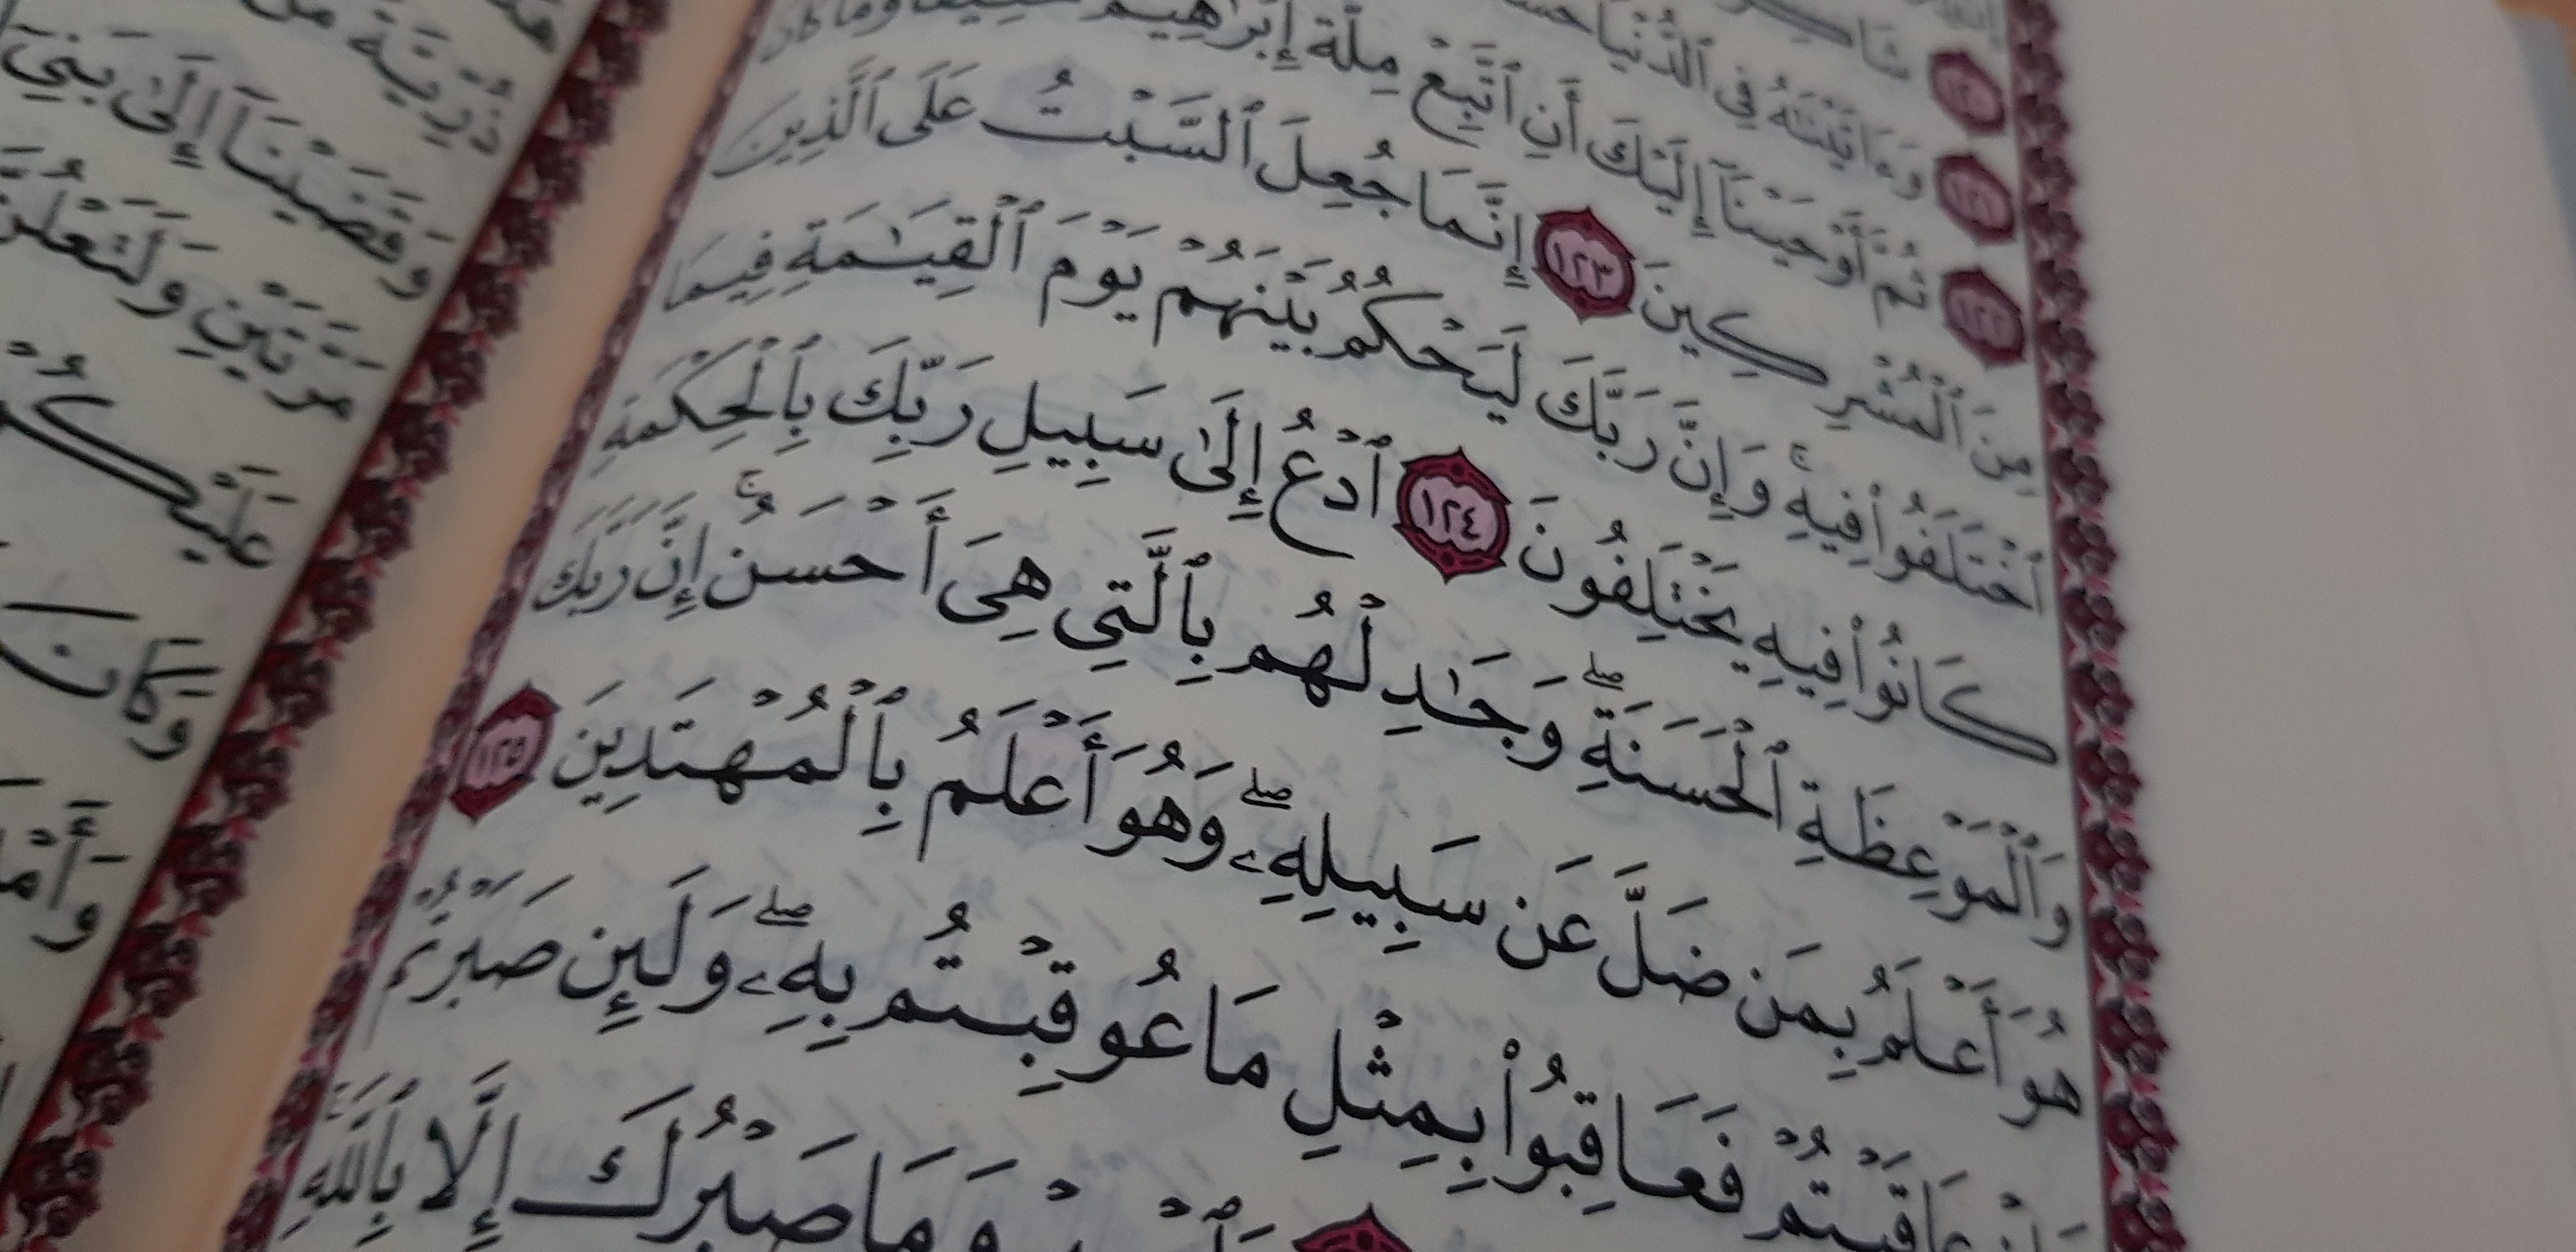 شَاكِرًا
وَءَاتَيْنَٰهُ فِى ٱلدُّنْيَا
١٢١
١٢٢ ثُمَّ أَوْحَيْنَآ إِلَيْكَ أَنِ ٱتَّبِعْ مِلَّةَ إِبْرَٰهِيمَ حَنِيفًا وَمَا كَانَ
مِنَ ٱلْمُشْرِكِينَ ١٢٣ إِنَّمَا جُعِلَ ٱلسَّبْتُ عَلَى ٱلَّذِينَ
ٱخْتَلَفُوا۟ فِيهِ ۚ وَإِنَّ رَبَّكَ لَيَحْكُمُ بَيْنَهُمْ يَوْمَ ٱلْقِيَٰمَةِ فِيمَا
كَانُوا۟ فِيهِ يَخْتَلِفُونَ ١٢٤ ٱدْعُ إِلَىٰ سَبِيلِ رَبِّكَ بِٱلْحِكْمَةِ
وَٱلْمَوْعِظَةِ ٱلْحَسَنَةِ ۖ وَجَٰدِلْهُم بِٱلَّتِى هِىَ أَحْسَنُ ۚ إِنَّ رَبَّكَ
هُوَ أَعْلَمُ بِمَن ضَلَّ عَن سَبِيلِهِۦ ۖ وَهُوَ أَعْلَمُ بِٱلْمُهْتَدِينَ ١٢٥
عَاقَبْتُمْ فَعَاقِبُوا۟ بِمِثْلِ مَا عُوقِبْتُم بِهِۦ ۖ وَلَئِن صَبَرْتُمْ
وَمَا صَبْرُكَ إِلَّا بِٱللَّهِ
ذُرِّيَّةَ مَنْ
وَقَضَيْنَآ إِلَىٰ بَنِىٓ
مَرَّتَيْنِ وَلَتَعْلُنَّ
عَلَيْكُمْ
وَكَانَ